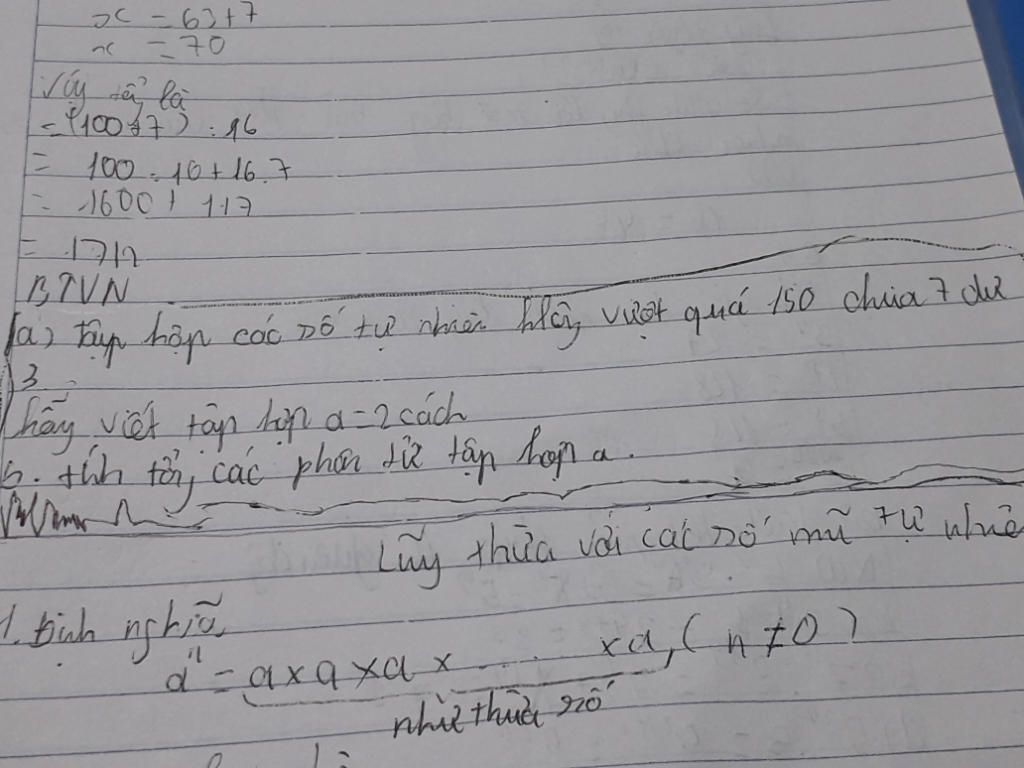 x = 63+7
x = 70
Vậy tổng là
= (100+7) . 16
= 100 . 16 + 16.7
= 1600 + 112
= 1712
BTVN
a) Tập hợp các số tự nhiên không vượt quá 150 chia 7 dư
3
hãy viết tập hợp a = 2 cách
b. tính tổng các phần tử tập hợp a.
Lũy thừa với các số mũ tự nhiê
1. Định nghĩa
aⁿ = a x a x a x ...... x a, ( n ≠ 0 )
thừa số